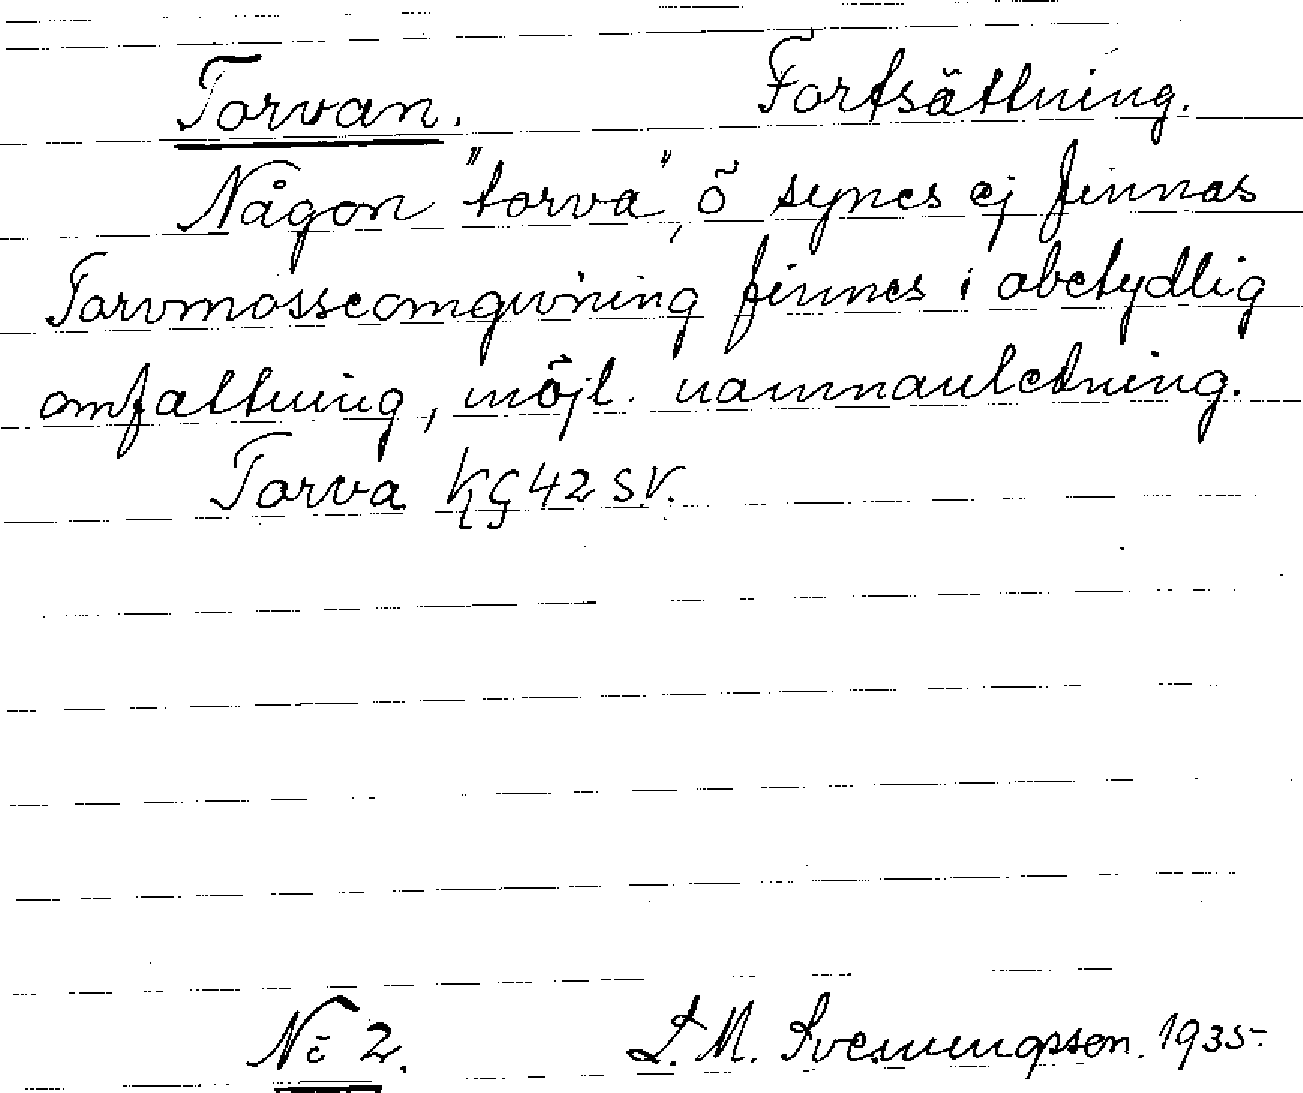 Torvan. Fortsättning.
Någon "torva", ö synes ej finnas
Torvmosseomgivning finnes i obetydlig
omfattning, möjl. namnanledning.
Torva KG 42 S.V.
No 2. L. M. Svenungsson. 1935